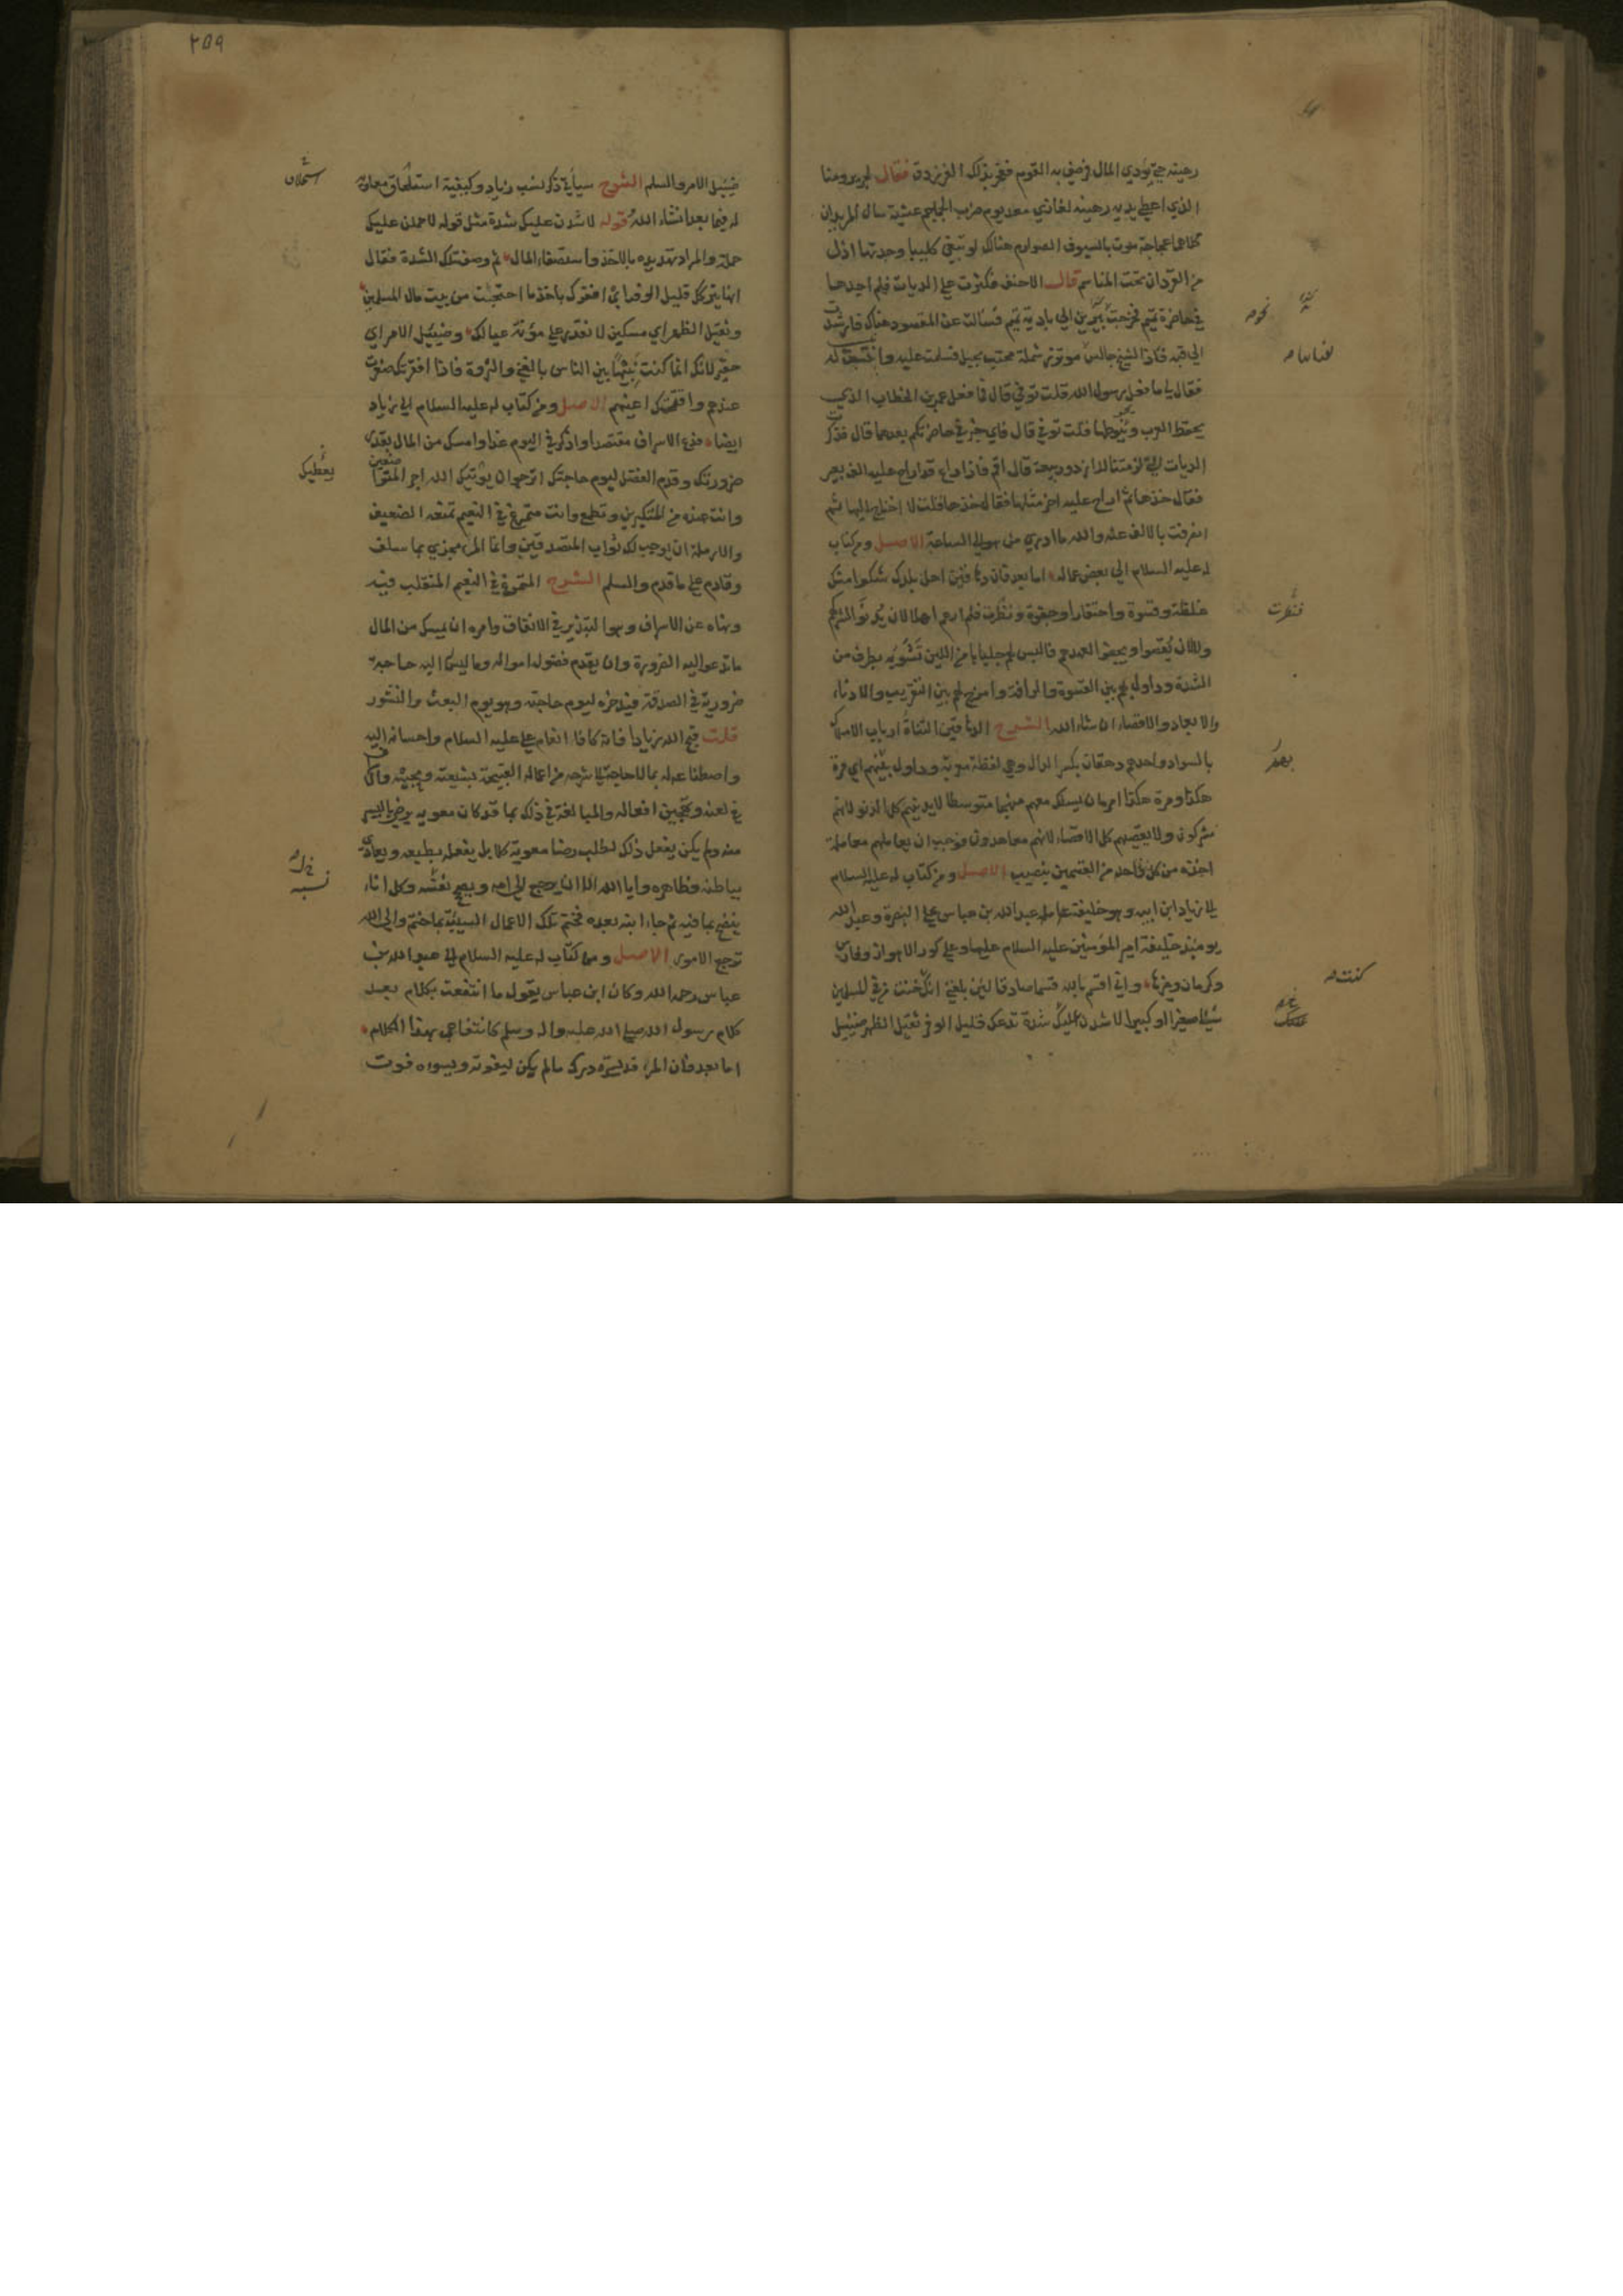 رهينة حتى يؤدي المال فرضي به القوم ففخر بذلك الفرزدق فقال لجرير ومنا
الذي اعطى يديه رهينة لغاري معد يوم ضرب الجماجم عشية سال المربدان
كلاهما عجاجة موت بالسيوف الصوارم هنالك لو تبغي كليبا وجدتها اذل
من القردان تحت المناسم قال الاحنف فكثرت علي الديات فلم اجدها
في حاضرة تميم فخرجت نحو يبرين الى بادية تميم فسالت عن المقصود هناك فارشدت
الى قبة فاذا شيخ جالس موتزر شملة محتب بحبل فسلمت عليه وانتسبت له
فقال لي ما فعل رسول الله قلت توفي قال فما فعل عمر بن الخطاب الذي
يحفظ العرب ويحوطها قلت توفي قال فاي خير في حاضرتكم بعدهما قال فذكرت
الديات التي لزمتنا للازد وربيعة قال اقم فاذا راع قد اراح عليه الف بعير
فقال خذها ثم اراح عليه اخر مثلها فقال خذها فقلت لا احتاج اليها ثم
انصرفت بالالف عنه والله ما ادري من هو الى الساعة الاصل ومن كتاب
له عليه السلام الى بعض عماله اما بعد فان دهاقين اهل بلدك شكوا منك
غلظة وقسوة واحتقارا وجفوة ونظرت فلم ارهم اهلا لان يدنوا لشركهم
ولا لان يقصوا ويجفوا لعهدهم فالبس لهم جلبابا من اللين تشوبه بطرف من
الشدة وداول لهم بين القسوة والرافة وامزج لهم بين التقريب والادناء
والابعاد والاقصاء ان شاء الله الشرح الدهاقين التناة ارباب الاملاك
بالسواد واحدهم دهقان بكسر الدال وهي لفظة معربة وداول بينهم اي مرة
هكذا ومرة هكذا امره ان يسلك معهم منهجا متوسطا لا يدنيهم كل الدنو لانهم
مشركون ولا يقصيهم كل الاقصاء لانهم معاهدون فوجب ان يعاملهم معاملة
اخذة من كل واحد من القسمين بنصيب الاصل ومن كتاب له عليه السلام
الى زياد ابن ابيه وهو خليفة عامله عبد الله بن عباس على البصرة وعبد الله
يومئذ خليفة امير المؤمنين عليه السلام عليها وعلى كور الاهواز وفارس
وكرمان وغيرها واني اقسم بالله قسما صادقا لئن بلغني انك خنت من فئ المسلمين
شيئا صغيرا او كبيرا لاشدن عليك شدة تدعك قليل الوفر ثقيل الظهر ضئيل
نحوه
فنظرت
بعضهم
كنت
٢٥٩
ضئيل الامر والسلم الشرح سياتي ذكر نسب زياد وكيفية استلحاق معاوية
له فيما بعد انشاء الله قوله لاشدن عليك شدة مثل قوله لاحملن عليك
حملة والمراد تهديده بالاخذ واستصفاء المال ثم وصف تلك الشدة فقال
انها تتركك قليل الوفر اي افقرك باخذ ما احتجنت من بيت مال المسلمين
وثقيل الظهر اي مسكين لا تقدر على مؤنة عيالك وضئيل الامر اي
حقير لانك انما كنت نبيها بين الناس بالغنى والثروة فاذا افتقرت صغرت
عندهم واقتحمتك اعينهم الاصل ومن كتاب له عليه السلام الى زياد
ايضا فدع الاسراف مقتصدا واذكر في اليوم غدا وامسك من المال بقدر
ضرورتك وقدم الفضل ليوم حاجتك اترجوا ان يؤتيك الله اجر المتواضعين
وانت عنده من المتكبرين وتطمع وانت متمرغ في النعيم تمنعه الضعيف
والارملة ان يوجب لك ثواب المتصدقين وانما المرء مجزي بما سلف
وقادم على ما قدم والسلم الشرح المتمرغ في النعيم المتقلب فيه
ونهاه عن الاسراف وهو التبذير في الانفاق وامره ان يمسك من المال
ما تدعو اليه الضرورة وان يقدم فضول امواله وما ليس اليه حاجة
ضرورية في الصدقة فيدخره ليوم حاجته وهو يوم البعث والنشور
قلت قبح الله زيادا فانه كافا انعام علي عليه السلام واحسانه اليه
واصطناعه له بما لا حاجة الى شرحه من اعماله القبيحة بشيعته ومحبيه والاسراف
في لعنه وتهجين افعاله والمبالغة في ذلك بما قد كان معوية يرضى باليسير
منه ولم يكن يفعل ذلك لطلب رضا معوية كلا بل يفعله بطبعه ويعاديه
بباطنه وظاهره وابا الله الا ان يرجع الى امه ويصحح نفسه وكل اناء
ينضح بما فيه ثم جاء ابنه بعده فختم تلك الاعمال السيئة بما ختم والى الله
ترجع الامور الاصل ومن كتاب له عليه السلام الى عبد الله بن
عباس رحمه الله وكان ابن عباس يقول ما انتفعت بكلام بعد
كلام رسول الله صلى الله عليه واله وسلم كانتفاعي بهذا الكلام
اما بعد فان المرء قد يسره درك مالم يكن ليفوته ويسوءه فوت
يعطيك
نسبه